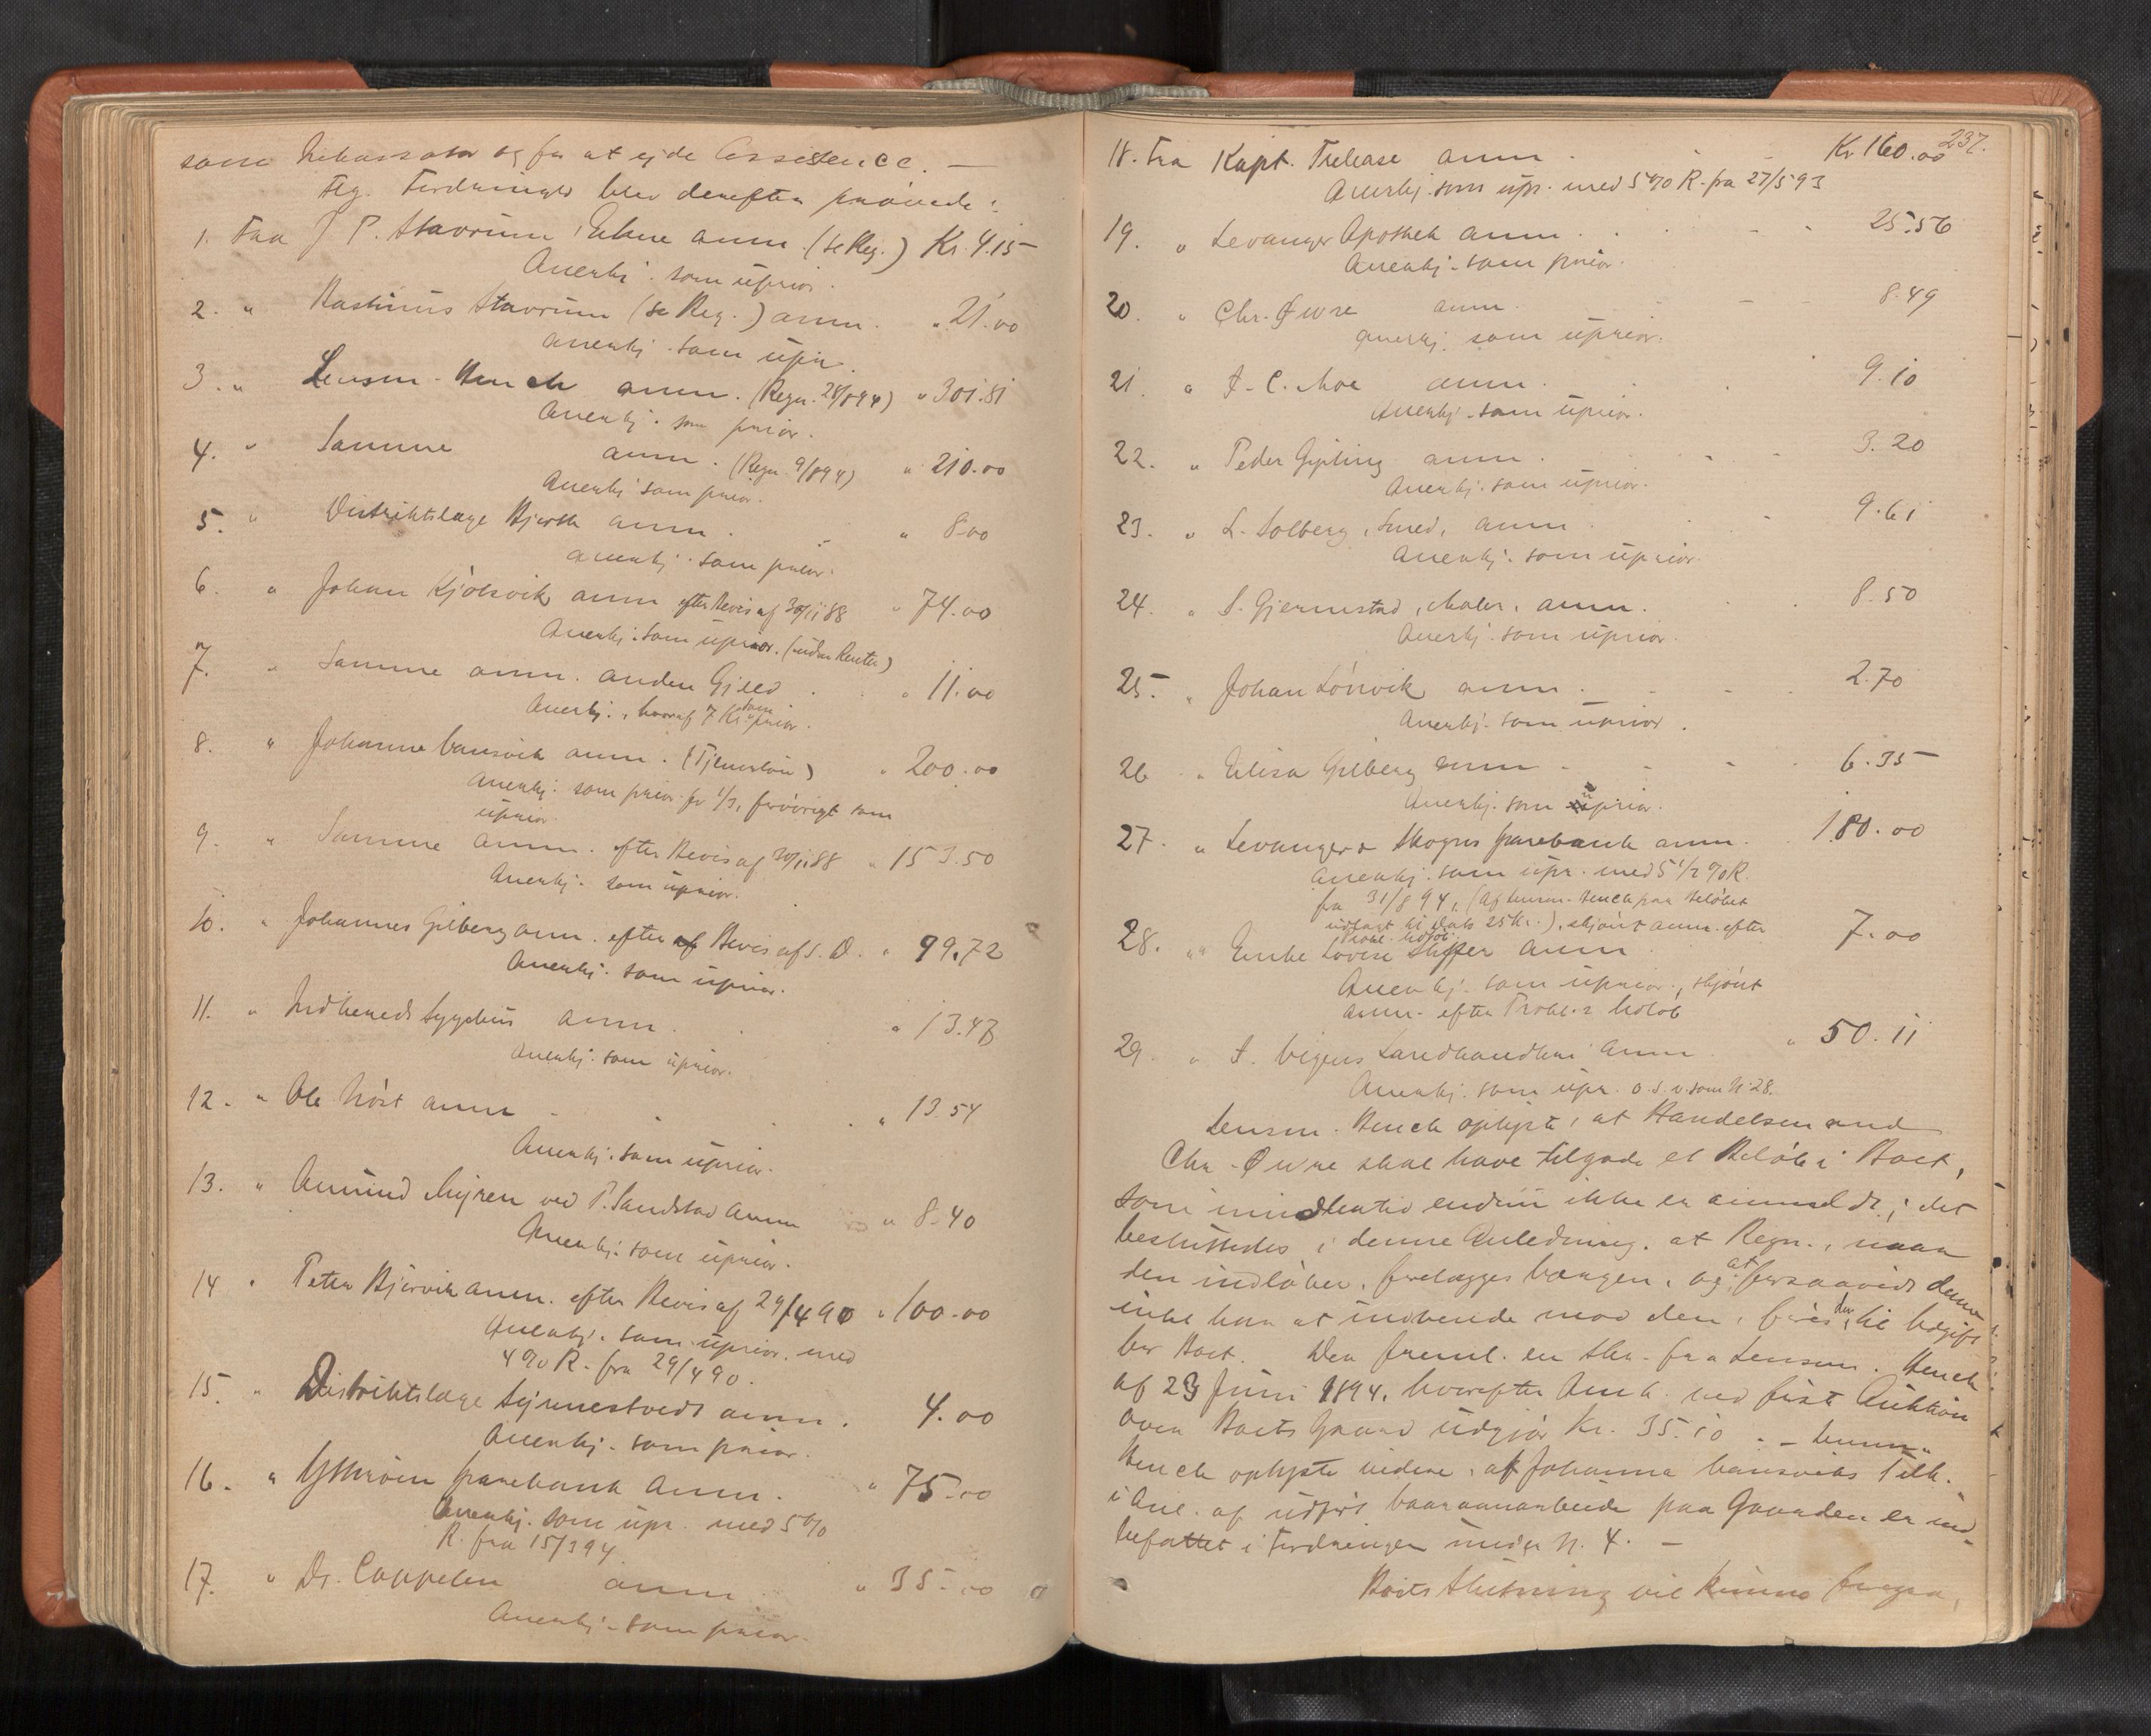 som Inkassator og for at yde Assistence. —
Flg. Fordringer blev derefter prøvede:
1. Fra J. P. Stavrum, Ekne anm. (se Reg.) Kr. 4.15
Anerkj. som uprior.
2. " Rasmus Stavrum (se Reg.) anm. " 21.00
Anerkj. som upr.
3. " Lensm. Henck anm. (Regn. 28/8 94) " 301.81
Anerkj. som prior.
4. " Samme anm. (Regn. 9/8 94) " 210.00
Anerkj. som prior.
5. " Distriktslæge Hjorth anm. " 8.00
Anerkj. som prior.
6. " Johan Kjølsvik anm. efter Bevis af 30/11 88 " 74.00
Anerkj. som uprior. (uden Renter)
7. " Samme anm. anden Gjeld . " 11.00
Anerkj., hvoraf 7 Kr. som prior.
8. " Johanna Vansvik anm. (Tjenerløn) " 200.00
Anerkj. som prior for 1/3, forøvrigt som
uprior.
9. " Samme anm. efter Bevis af 30/11 88 " 153.50
Anerkj. som uprior.
10. " Johannes Gilberg anm. efter af Bevis af s. D. " 99.72
Anerkj. som uprior.
11. " Indherreds Sygehus anm. " 13.43
Anerkj. som uprior.
12. " Ole Høst anm " 13.54
Anerkj. som uprior.
13. " Amund Myren ved P. Sandstad anm " 8.40
Anerkj. som uprior.
14 " Peter Bjørvik anm. efter Bevis af 29/4 90 " 100.00
Anerkj. som uprior. med
4 % R. fra 29/4 90.
15. " Distriktslæge anm. 4.00
Anerkj. som prior.
16. " Ytterøen Sparebank anm. " 75.00
Anerkj. som upr. med 5 %
R. fra 15/3 94.
17. " Dr. Cappelen anm " 35.00
Anerkj. som prior.
237.
18. Fra Kapt. Trelease anm . Kr 160.00
Anerkj. som upr. med 5 % R. fra 27/5 93
19. " Levanger Apothek anm. 25.56
Anerkj. som prior.
20. " Chr. Øwre anm. 8.49
Anerkj. som uprior.
21. " J. C. Moe anm. 9.10
Anerkj. som uprior.
22. " Peder Gipling anm. 3.20
Anerkj. som uprior.
23. " L. Solberg, Smed, anm. 9.61
Anerkj. som uprior.
24. " S. Gjermstad, Maler, anm. 8.50
Anerkj. som uprior.
25. " Johan Lønvik anm . 2.70
Anerkj. som uprior.
26 " Elisa Gilberg anm 6.35
Anerkj. som uprior.
27. " Levanger & Skogns Sparebank anm. 180.00
Anerkj. som upr. med 5 1/2 % R.
fra 31/8 94, (af Lensm. Henck paa Beløbet
udlagt til Dato 25 Kr.), skjønt anm. efter
Prokl. Udløb.
28. " Enke Lovise anm 7.00
Anerkj. som uprior., skjønt
anm. efter Prokl.s Udløb
29. " J. Vigens Landhandleri anm " 50.11
Anerkj. som upr. o.s.v. som N. 28.
Lensm. Henck oplyste, at Handelsmand
Chr. Øwre skal have tilgode et Beløb i Boet,
som imidlertid endnu ikke er anmeldt; det
besluttedes i denne Anledning, at Regn., naar
den indløber, forelægges Vangen, og at forsaavidt denne
intet har at indvende mod den, føres den til Udgift
for Boet. Der freml. en Skr. fra Lensm. Henck
af 23 Juni 1894, hvorefter Omk. ved first Auktion
over Boets Gaard udgjør Kr. 35.10. — Lensm.
Henck oplyste videre, at Johanna Vansviks Tilh.
i Anl. af udført Vaaraanarbeide paa Gaarden er ind-
befattet i Fordringen under N. 4. —
Boets Slutning vil kunne foregaa,